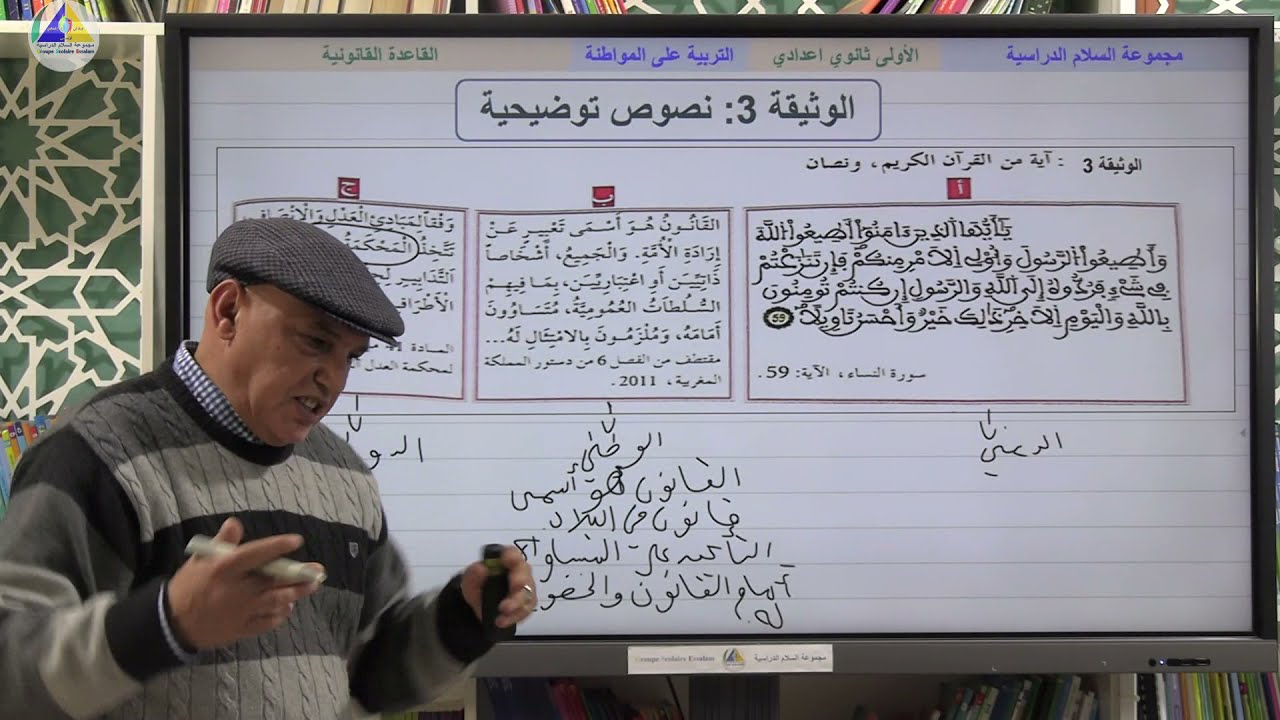 مجموعة السلام الدراسية
Groupe Scolaire Essalam
مجموعة السلام الدراسية الأولى ثانوي اعدادي التربية على المواطنة القاعدة القانونية
الوثيقة 3: نصوص توضيحية
الوثيقة 3 : آية من القرآن الكريم، ونصان
أ
يَٰٓأَيُّهَا ٱلذِينَ ءَامَنُوٓاْ أَطِيعُواْ ٱللَّهَ
وَأَطِيعُواْ ٱلرَّسُولَ وَأُوْلِے اِلَامْرِ مِنكُمْ فَإِن تَنَٰزَعْتُمْ
فِے شَےْءٖ فَرُدُّوهُ إِلَى ٱللَّهِ وَالرَّسُولِ إِن كُنتُمْ تُومِنُونَ
بِاللَّهِ وَالْيَوْمِ اِلَاخِرِ ذَٰلِكَ خَيْرٌ وَأَحْسَنُ تَاوِيلاً 59
سورة النساء، الآية: 59.
ب
القَانُونُ هُوَ أَسْمَى تَعْبِيرٍ عَنْ
إِرَادَةِ الْأُمَّةِ. وَالْجَمِيعُ، أَشْخَاصاً
ذَاتِيِّينَ أَوِ اعْتِبَارِيِّينَ، بِمَا فِيهِمْ
السُّلُطَاتُ العُمُومِيَّةُ، مُتَسَاوُونَ
أَمَامَهُ، وَمُلْزَمُونَ بِالامْتِثَالِ لَهُ...
مقتطف من الفصل 6 من دستور المملكة
المغربية، 2011.
ج
وَفْقاً لِمَبَادِئِ الْعَدْلِ وَالْإِنْصَافِ
تَتَّخِذُ الْمَحْكَمَةُ
التَّدَابِيرِ
الْأَطْرَافِ
المادة
لمحكمة العدل
الديني
الوطني
القانون هو أسمى
قانون في البلاد.
التأكيد على المساواة
أمام القانون والخضوع
له.
الدو
Groupe Scolaire Essalam مجموعة السلام الدراسية